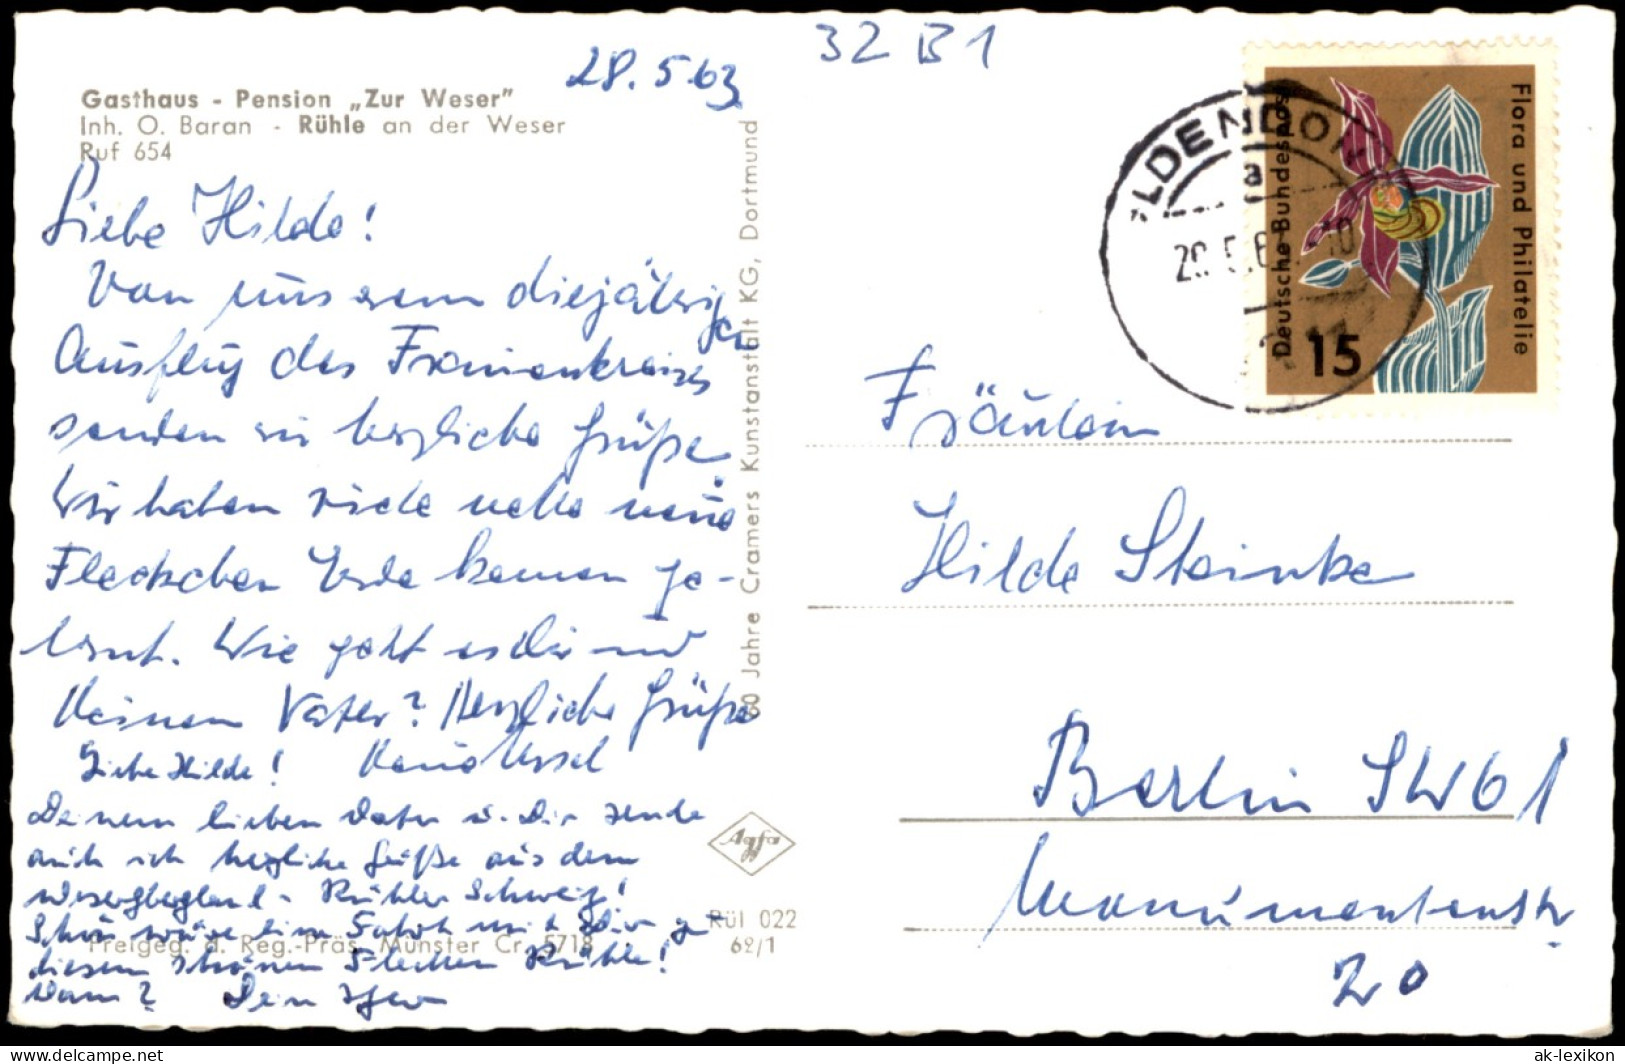 32 B 1
28.5.63
Gasthaus - Pension „Zur Weser"
Inh. O. Baran - Rühle an der Weser
Ruf 654
Liebe Hilde!
Von unserem diesjährigen
Ausflug des Frauenkreises
senden wir herzliche Grüße.
Wir haben viele nette neue
Fleckchen Erde kennen ge-
lernt. Wie geht es Dir und
Deinem Vater? Herzliche Grüße
Liebe Hilde!
Deinem lieben Vater u. Dir sende
auch ich herzliche Grüße aus dem
Weserbergland - Rühler Schweiz!
Schön wäre eine Fahrt mit Dir zu
diesem schönen Flecken Rühle!
Wann? Dein
60 Jahre Cramers Kunstanstalt KG, Dortmund
Agfa
Rül 022
62/1
Freigeg. d. Reg.-Präs. Münster Cr. 5718
LDENDO
a
Deutsche Bundespost
Flora und Philatelie
15
Fräulein
Hilde Steinke
Berlin SW 61
Monumentenstr
20
ak-lexikon